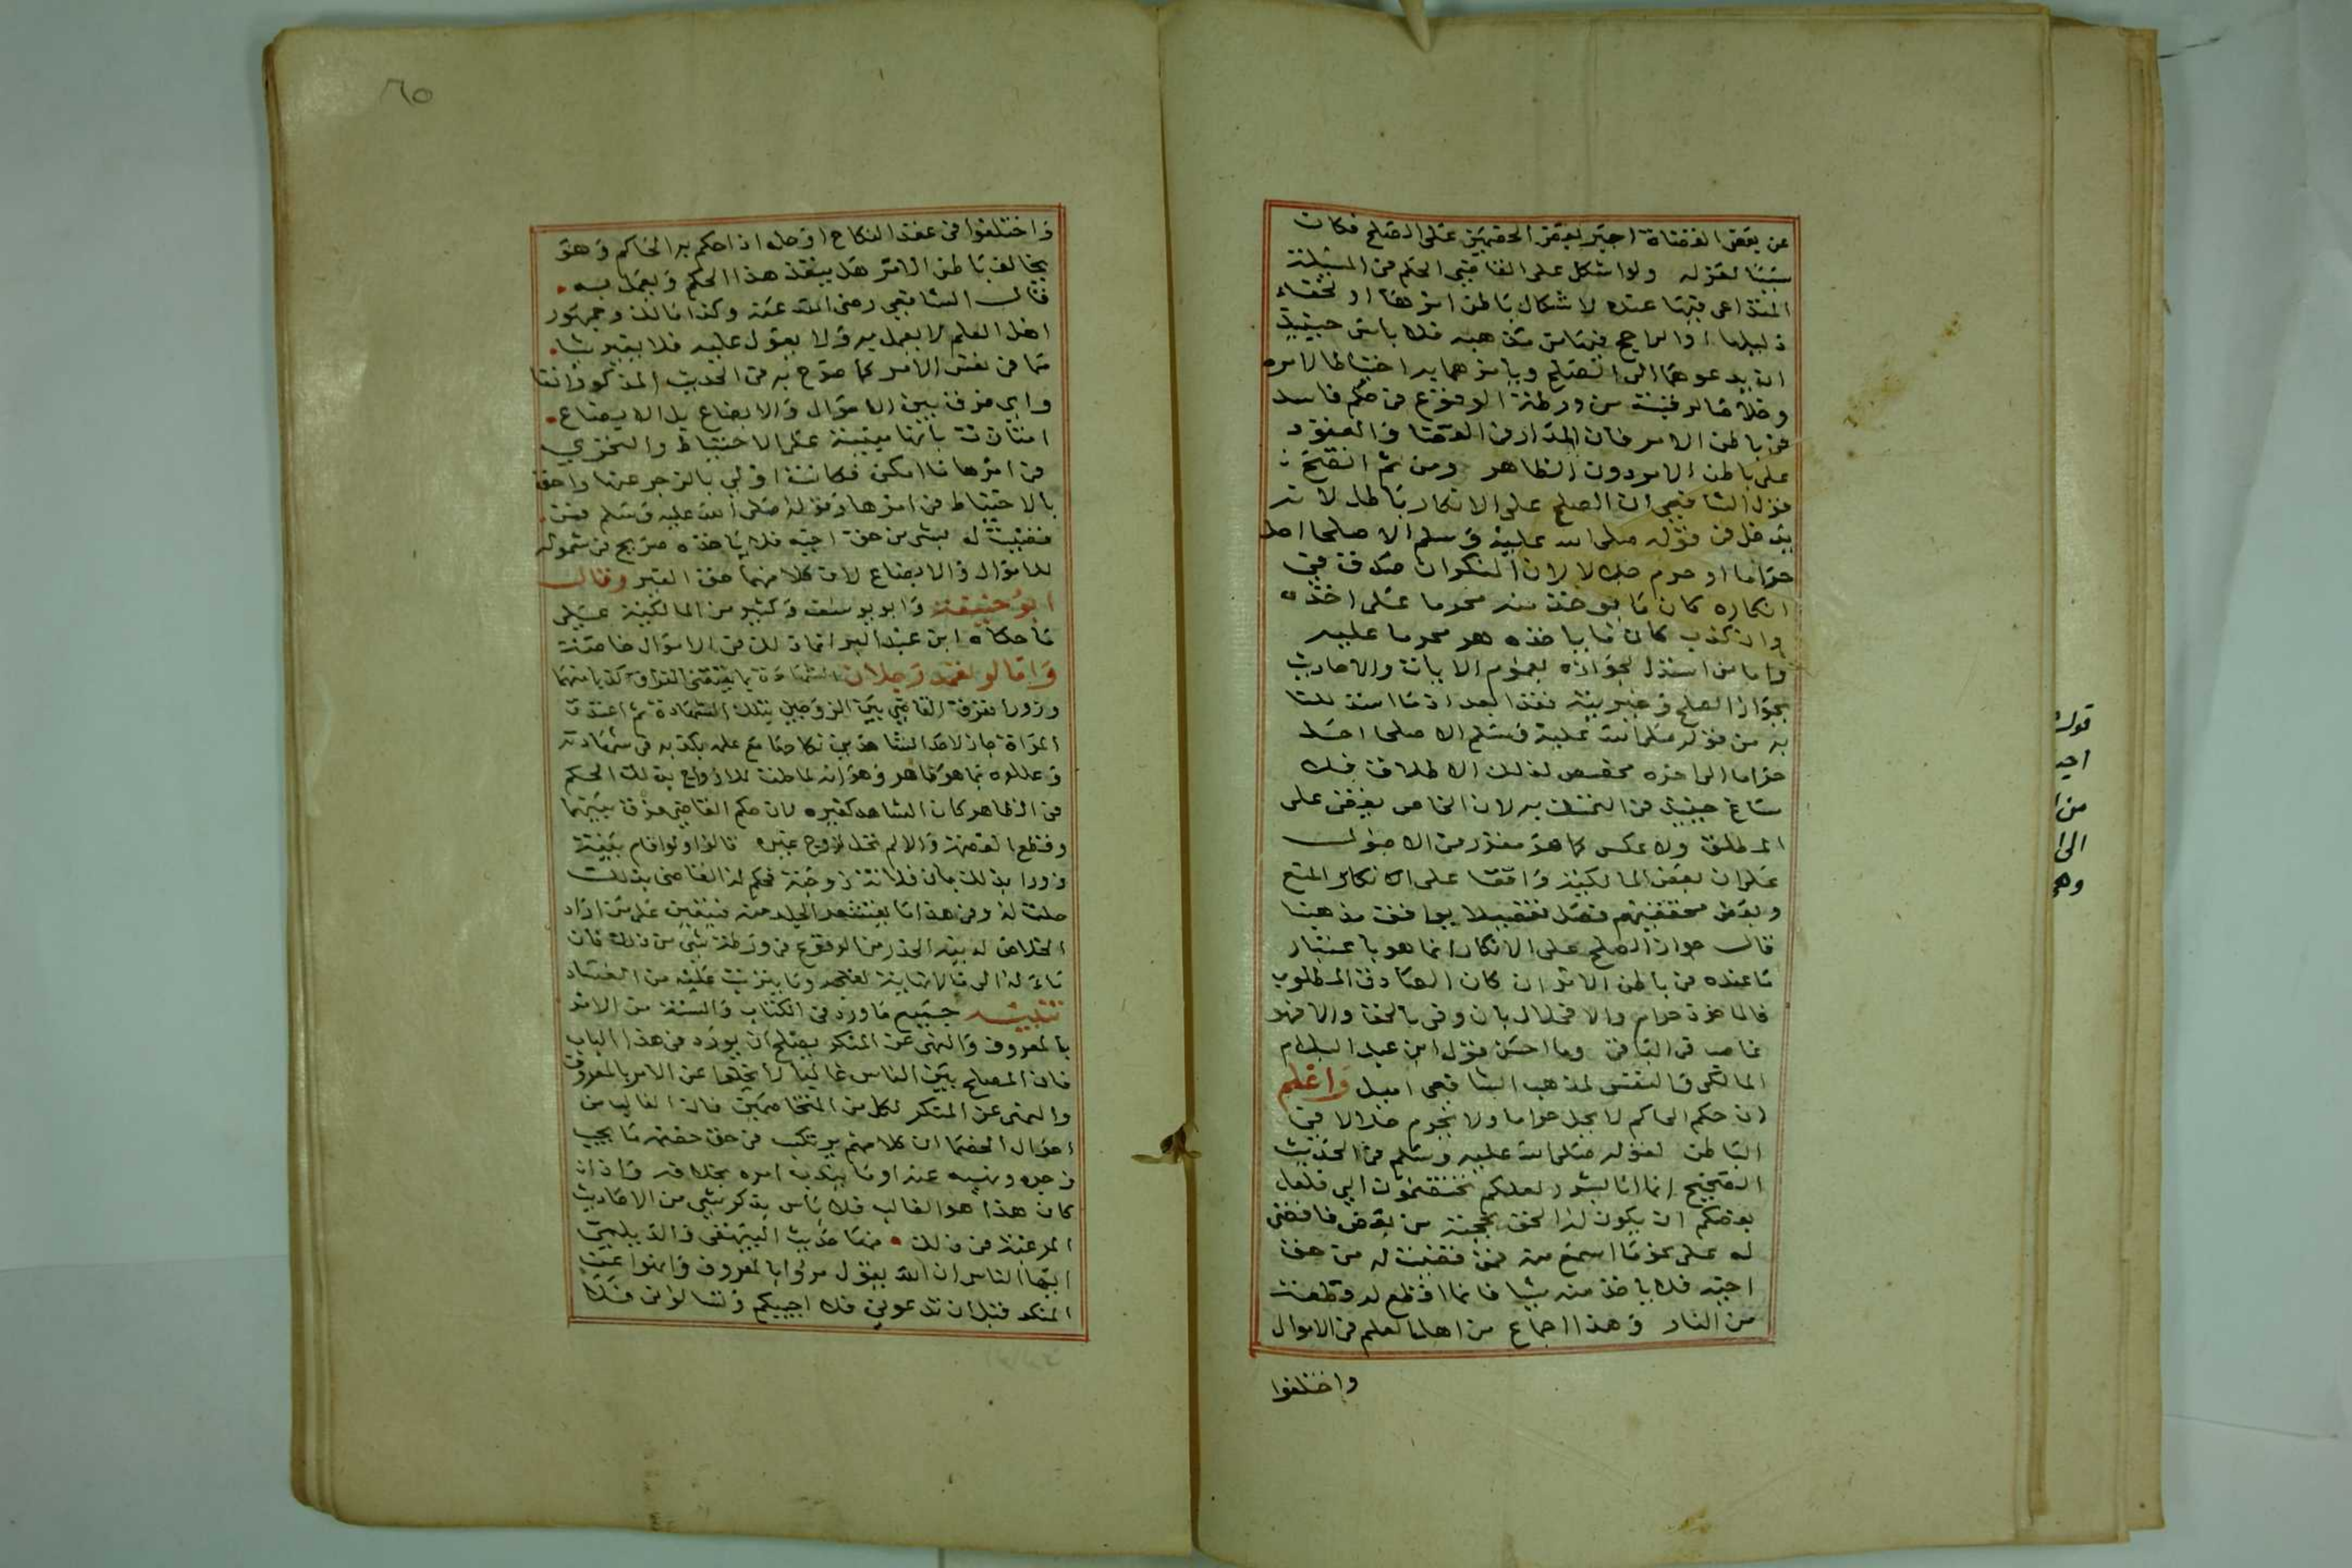 عن بعض القضاة اجبر بعض الخصمين على الصلح فكان
سببا لعزله ولو اشكل على القاضي الحكم في المسئلة
المتداعى فيها عنده لاشكال باطن امرها او لخفاء
دليلها او الراجح فيها من مذهبه فلا باس حينئذ
ان يدعوهما الى الصلح ويامرهما به احتياطا لامره
وخلاصا لرقبته من ورطة الوقوع في حكم فاسد
في باطن الامر فان المدار في القضا والعقود
على باطن الامر دون الظاهر ومن ثم اتضح
قول الشافعي ان الصلح على الانكار باطل لانه
يدخل في قوله صلى الله عليه وسلم الا صلحا احل
حراما او حرم حلالا لان المنكر ان صدق في
انكاره كان ما يوخذ منه محرما على اخذه
وان كذب كان ما ياخذه هو محرما عليه
واما من استدل لجوازه بعموم الايات والاحاديث
بجواز الصلح وغيريته فقد ابعد اذ ما استدللنا
به من قوله صلى الله عليه وسلم الا صلحا احل
حراما الى اخره مخصص لذلك الاطلاق فلا
ساغ حينئذ في التمسك به لان الخاص يقضى على
المطلق ولا عكس كما هو مقرر في الاصول
على ان بعض المالكية وافقنا على الانكار المنع
وبعض محققيهم فصل تفصيلا يوافق مذهبنا
فقال جواز الصلح على الانكار انما هو باعتبار
ما عنده في باطن الامر ان كان الصادق المطلوب
فالماخوذ حرام والا فحلال بان وفى بالحق والا فهو
غاصب في الباقي وما احسن قول ابن عبد السلام
المالكي والنفس لمذهب الشافعي اميل واعلم
ان حكم الحاكم لا يحل حراما ولا يحرم حلالا في
الباطن لقوله صلى الله عليه وسلم في الحديث
الصحيح انما انا بشر ولعلكم تختصمون الي فلعل
بعضكم ان يكون الحن بحجته من بعض فاقضي
له على نحو ما اسمع منه فمن قضيت له من حق
اخيه فلا ياخذ منه شيا فانما اقطع له قطعة
من النار وهذا اجماع من اهل العلم في الاموال
واختلفوا
قوله
اجيـ
من ا
الى ا
وهو
٦٥
واختلفوا في عقد النكاح او حله اذا حكم به الحاكم وهو
يخالف باطن الامر هل ينفذ هذا الحكم ويعمل به
فقال الشافعي رضى الله عنه وكذا مالك وجمهور
اهل العلم لا يعمل به ولا يعول عليه فلا يغير شيا
مما في نفس الامر كما صرح به في الحديث المذكور انفا
واي فرق بين الاموال والابضاع بل الابضاع
امتازت بانها مبنية على الاحتياط والتحري
في امرها ما امكن فكانت اولى بالزجر عنها واحق
بالاحتياط في امرها وقوله صلى الله عليه وسلم فمن
قضيت له بشي من حق اخيه فلا ياخذه صريح في شموله
للاموال والابضاع لان كلا منهما حق الغير وقال
ابو حنيفة وابو يوسف وكثير من المالكية على
ما حكاه ابن عبد البر انما ذلك في الاموال خاصة
واما لو تعمد رجلان الشهادة بما يقتضى الفراق كذبا منهما
وزورا ففرق القاضي بين الزوجين بتلك الشهادة ثم اعتدت
المراة جاز لاحد الشاهدين نكاحها مع علمه بكذبه في شهادته
وعللوه بما هو ظاهر وهو انه لما حلت للازواج بذلك الحكم
في الظاهر كان الشاهد كغيره لان حكم القاضي فرق بينهما
وقطع العصمة والا لم تحل لزوج غيره قالوا ولو اقام بينة
زورا بذلك بان فلانة زوجته فحكم له القاضي بذلك
حلت له وفي هذا ما يقشعر الجلد منه فيتعين على من اراد
الخلاص لدينه الحذر من الوقوع في ورطة شي من ذلك فان
ماله الى ما لا نهاية لقبحه وما يترتب عليه من الفساد
تنبيه جميع ما ورد في الكتاب والسنة من الامر
بالمعروف والنهى عن المنكر يصلح ان يورد في هذا الباب
فان المصلح بين الناس غالبا لا يخلوا عن الامر بالمعروف
والنهى عن المنكر لكل من المتخاصمين فان الغالب من
احوال الخصما ان كلا منهم يرتكب في حق خصمه ما يجب
زجره ونهيه عنه او ما يندب امره بخلافه واذا
كان هذا هو الغالب فلا باس بذكر شي من الاحاديث
المرغبة في ذلك فمنها حديث البيهقي والديلمي
ايها الناس ان الله يقول مروا بالمعروف وانهوا عن
المنكر قبل ان تدعوني فلا اجيبكم وتسالوني فلا